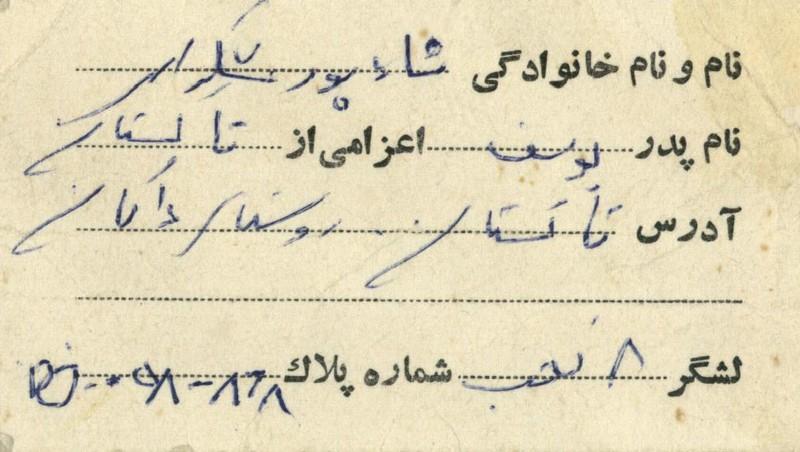 نام و نام خانوادگی شاهپور شکری
نام پدر یوسف اعزامی از تاکستان
آدرس تاکستان روستای داکان
لشگر ۸ نجف شماره پلاك